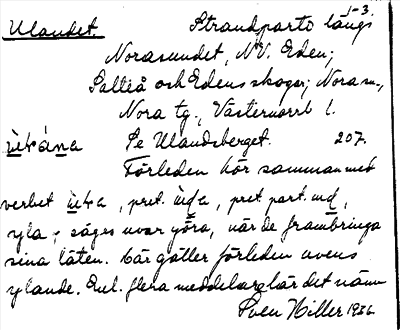 1-3.
Ulandet. Strandparti längs
Norasundet, N.V. Eden;
Salteå och Edens skogar; Nora sn.,
Nora tg., Västernorrl l.
Se Ulandsberget. 207.
Förleden hör samman med
verbet , pret. , pret. part.
yla, säges uvar göra, när de frambringa
sina läten. Här gäller förleden uvens
ylande. Enl. flera meddelare lär det
Sven Hiller 1936